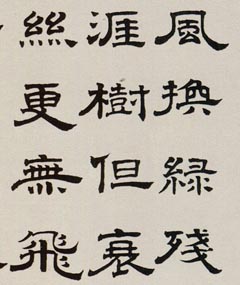 風換緑殘
涯樹但衰
絲更無飛